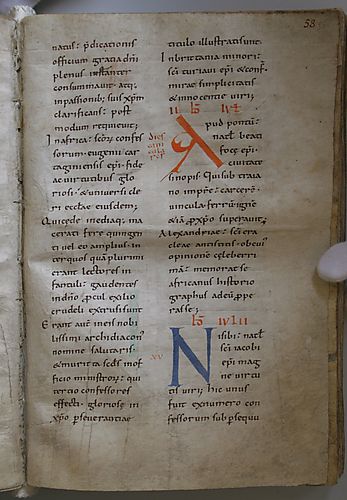 58
natus: p̄dicationis
officium gratia dn̄i
plenus instanter
consummauit. atq;
in passionib; suis xp̄m
clarificans: post
modum requieuit;
In africa: sc̄orum confes
sorum. eugenii car
taginensis ep̄i. fide
ac uirtutibus glo
riosi. & uniuersi cle
ri ecclae eiusdem;
Qui cede inediaq; ma
cerati fere quingen
ti uel eo amplius. in
ter quos quā plurimi
erant lectores in
fantuli: gaudentes
in dn̄o p̄cul exilio
crudeli extrusi sunt
Erant autē in eis nobi
lissimi archidiaconꝰ
nomine salutaris.
& murita scds in of
ficio ministrorū: qui
tertio confessores
effecti. gloriose in
xp̄o p̄seuerantiae
titulo illustrati sunt.
In brittania minori:
sc̄i turiaui ep̄i & conf.
mirae simplicitatis
& innocentie uiri;
dies
Apud pontū:
natł beati
foce ep̄i.
ciuitate
sinopis. Qui sub traia
no impre: carcerē.
uincula. ferrū. igne
& iā p̄ xp̄o superauit;
Alexandriae: sc̄i era
cleae antistitis. ob cuiꝰ
opinionē celeberri
mā: memorat se
africanus historio
graphus adeū p̄pe
rasse;
XV
Nisibi: natł
sc̄i iacobi
ep̄i mag
ne uirtu
tis uiri; hic unus
fuit ex numero con
fessorum sub p̄sequu